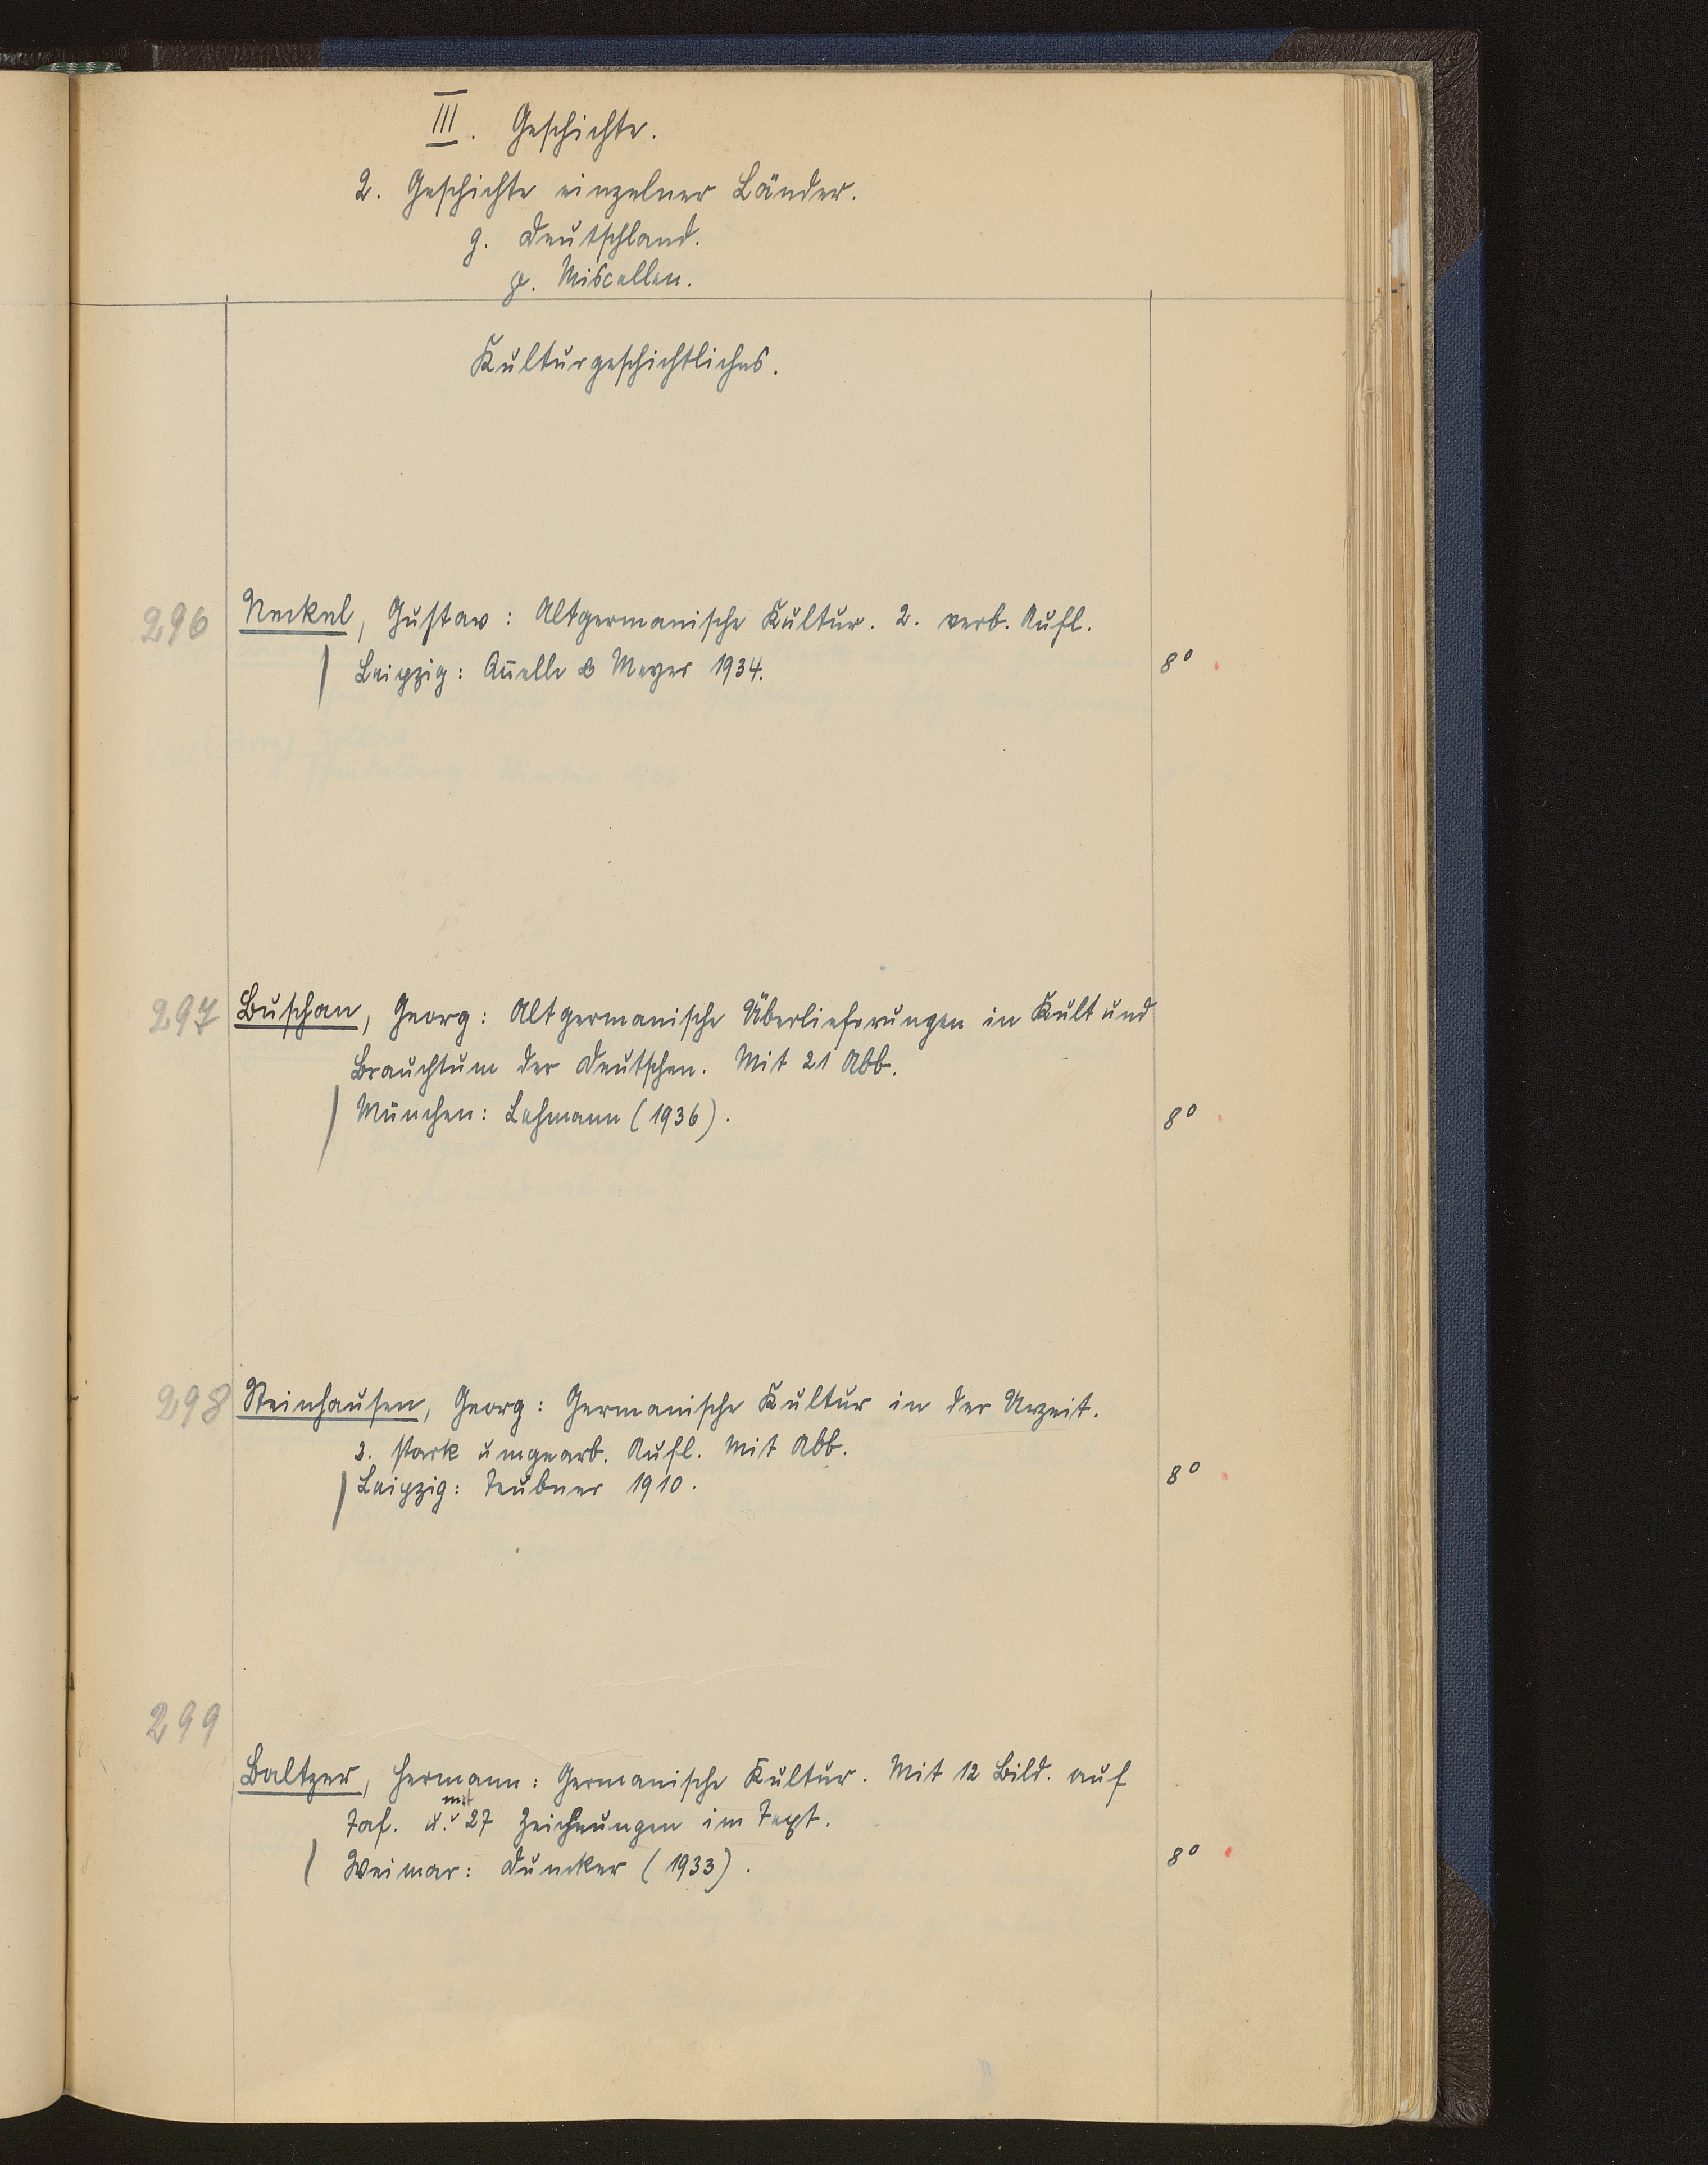 III. Geschichte.
2. Geschichte einzelner Länder.
g. Deutschland.
γ. Miscellen.
Kulturgeschichtliches.
296 Neckel, Gustav: Altgermanische Kultur. 2. verb. Aufl.
Leipzig: Quelle & Meyer 1934. 8°
297 Buschan, Georg: Altgermanische Überlieferungen in Kult und
Brauchtum der Deutschen. Mit 21 Abb.
München: Lehmann (1936). 8°
298 Steinhausen, Georg: Germanische Kultur in der Urzeit.
2. stark umgearb. Aufl. Mit Abb.
Leipzig: Teubner 1910. 8°
299
Baltzer, Hermann: Germanische Kultur. Mit 12 Bild. auf
Taf. u. mit 27 Zeichnungen im Text.
Weimar: Duncker (1933). 8°